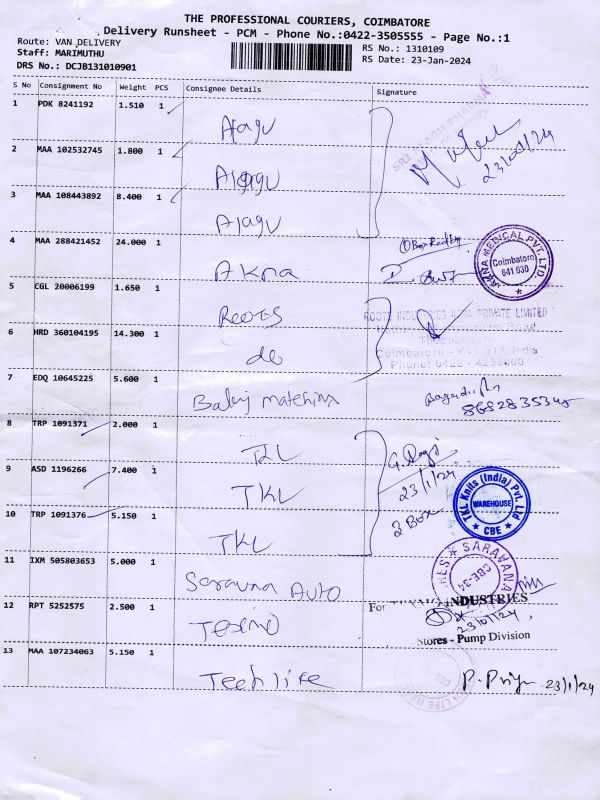 THE PROFESSIONAL COURIERS, COIMBATORE
Delivery Runsheet - PCM - Phone No.:0422-3505555 - Page No.:1
Route: VAN DELIVERY
Staff: MARIMUTHU
DRS No.: DCJB131010901
RS No.: 1310109
RS Date: 23-Jan-2024
S No Consignment No Weight PCS Consignee Details Signature
1 PDK 8241192 1.510 1 Alagu
SRI ALAGU PHARMA
23/01/24
2 MAA 102532745 1.800 1 Alagu
3 MAA 108443892 8.400 1 Alagu
4 MAA 288421452 24.000 1 Akna
AKNA MEDICAL PVT. LTD.
Coimbatore
641 030
5 CGL 20006199 1.650 1 Roots
ROOTS INDUSTRIES INDIA PRIVATE LIMITED
Road
6 HRD 360104195 14.300 1 do
Coimbatore - India
Phone: 0422 -
7 EDQ 10645225 5.600 1 Balaji
8 TRP 1091371 2.000 1 TKL
23/1/24
9 ASD 1196266 7.400 1 TKL
TKL Knits (India) Pvt. Ltd
WAREHOUSE
CBE
10 TRP 1091376 5.150 1 TKL
2 Box
11 IXM 505803653 5.000 1 Saravna Auto
SARAVANA
For INDUSTRIES
12 RPT 5252575 2.500 1
23/01/24
Stores - Pump Division
13 MAA 107234063 5.150 1 Tech life
P. Priya 23/1/24